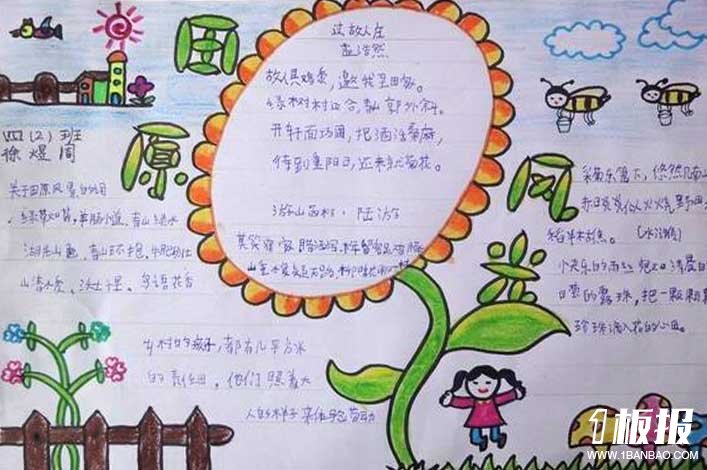 田
原
风
光
四(2)班
徐煜
过故人庄
孟浩然
故人具鸡黍，邀我至田家。
绿树村边合，青山郭外斜。
开轩面场圃，把酒话桑麻，
待到重阳日，还来就菊花。
游山西村·陆游
莫笑农家腊酒浑，丰年留客足鸡豚
山重水复疑无路，柳暗花明又一村
关于田原风景的词
绿草如茵，羊肠小道，青山绿水
湖光山色，青山环抱，
山清水秀、沃土千里、鸟语花香
乡村的孩子，都有几平方米
的责任田，他们照着大
人的样子亲体验劳动
采菊东篱下，悠然见南山
赤日炎炎似火烧
稻半枯焦。(水浒传)
小
日里的露珠，把一颗颗
珍珠滴入花的心里。
1板报
WWW.1BANBAO.COM